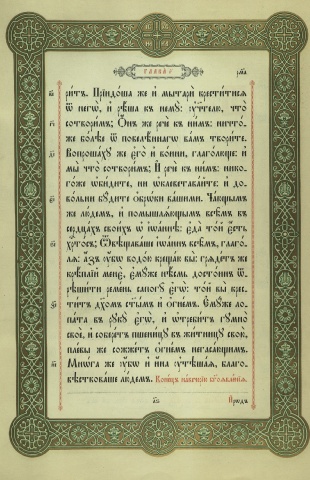 ГЛАВА Г҃
рма
ритъ. Прїидоша же и҆ мытари крⷭ҇титисѧ
ѿ негѡ̀, и҆ рѣша къ нему̀: ᲂу҆чителю, что̀
сотвори́мъ; Ѻ҆́нъ же речѐ къ ни́мъ: ничто́-
же бо́лѣе ѿ повелѣ́ннагѡ ва́мъ твори́те.
Вопроша́ху же є҆го̀ и҆ во́ини, глаго́люще: и҆
мы̀ что̀ сотвори́мъ; И҆ речѐ къ ни́мъ: нико-
го́же ѡ҆би́дите, ни ѡ҆клевета́йте: и҆ до-
во́льни бу́дите ѻ҆бро́ки ва́шими. Ча́ющымъ
же лю́демъ, и҆ помышлѧ́ющымъ всѣ̑мъ въ
сердца́хъ свои́хъ ѡ҆ і҆ѡа́ннѣ: є҆да̀ то́й є҆́сть
хрⷭ҇то́съ; Ѿвѣщава́ше і҆ѡа́ннъ всѣ̑мъ, глаго́-
лѧ: а҆́зъ ᲂу҆́бѡ водо́ю креща́ю вы̀: грѧде́тъ же
крѣ́плїй менє̀, є҆му́же нѣ́смь досто́инъ ѿ-
рѣши́ти реме́нь сапогꙋ̀ є҆гѡ̀: то́й вы̀ кре-
сти́тъ дх҃омъ ст҃ымъ и҆ ѻ҆гне́мъ. Є҆му́же ло-
па́та въ рꙋкꙋ̀ є҆гѡ̀, и҆ ѡ҆треби́тъ гꙋмно̀
своѐ, и҆ собере́тъ пшени́цꙋ въ жи́тницꙋ свою̀,
пле́вы же сожже́тъ ѻ҆гне́мъ негаса́ющимъ.
Мнѡ́га же ᲂу҆́бѡ и҆ и҆́на ᲂу҆тѣша́ѧ, благо-
вѣствова́ше лю́демъ. Коне́цъ наве́черїю бг҃оѧвле́нїѧ.
Прю́дъ